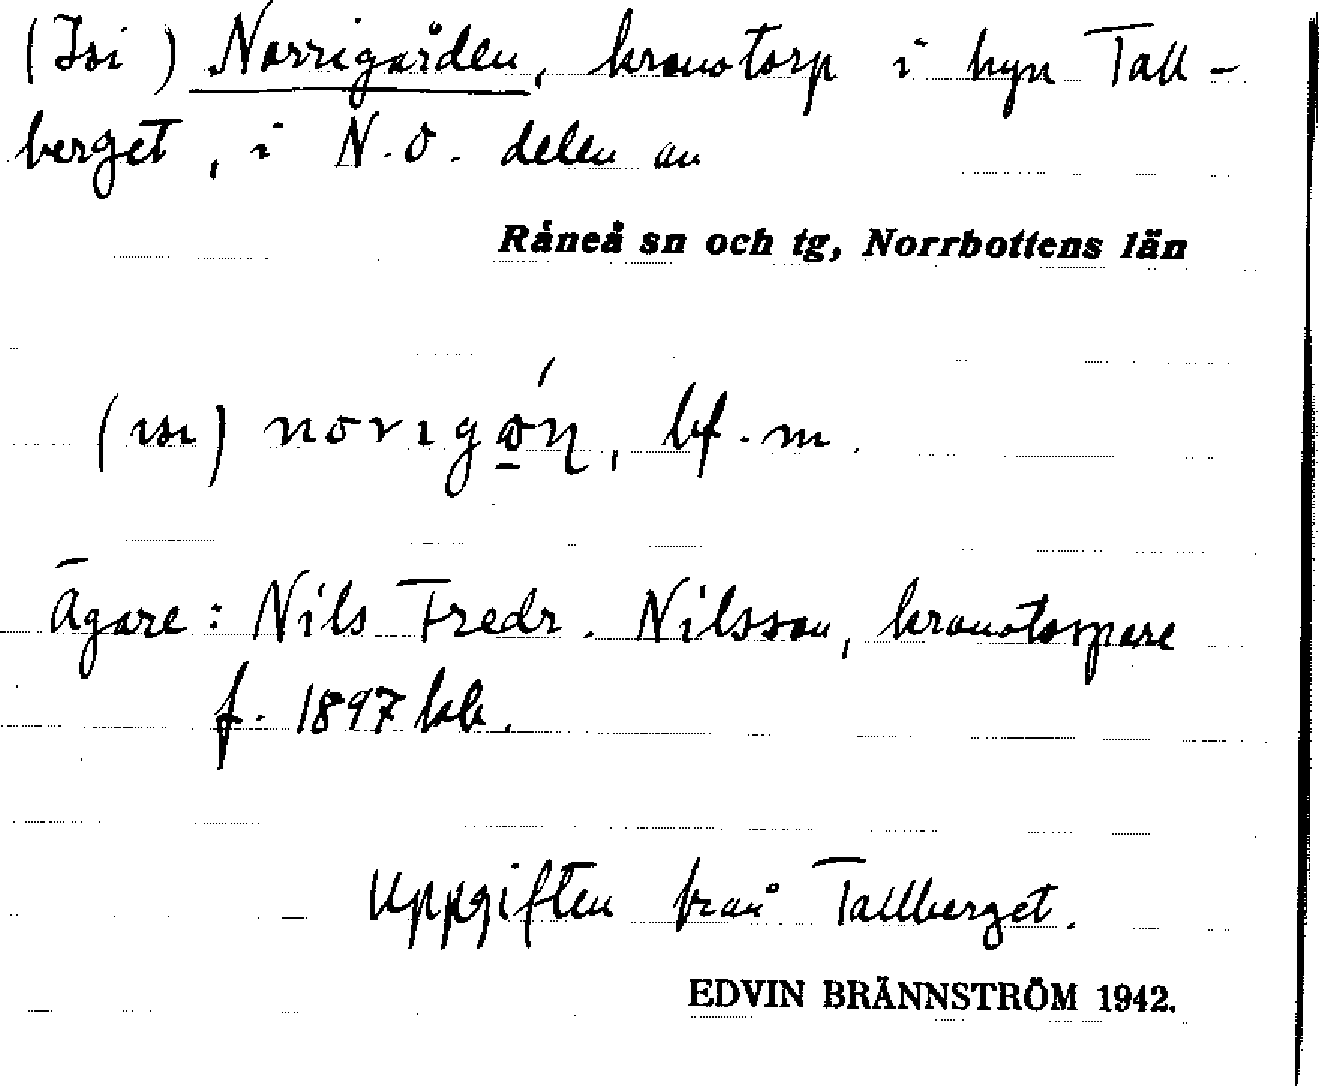 (Isi) Norrigården, kronotorp i byn Tall-
berget, i N.O. delen av
Råneå sn och tg, Norrbottens län
(ɪsɪ) norɪgǫ́η, bf. m.
Ägare: Nils Fredr. Nilsson, kronotorpare
f. 1897 här.
Uppgiften från Tallberget.
EDVIN BRÄNNSTRÖM 1942.